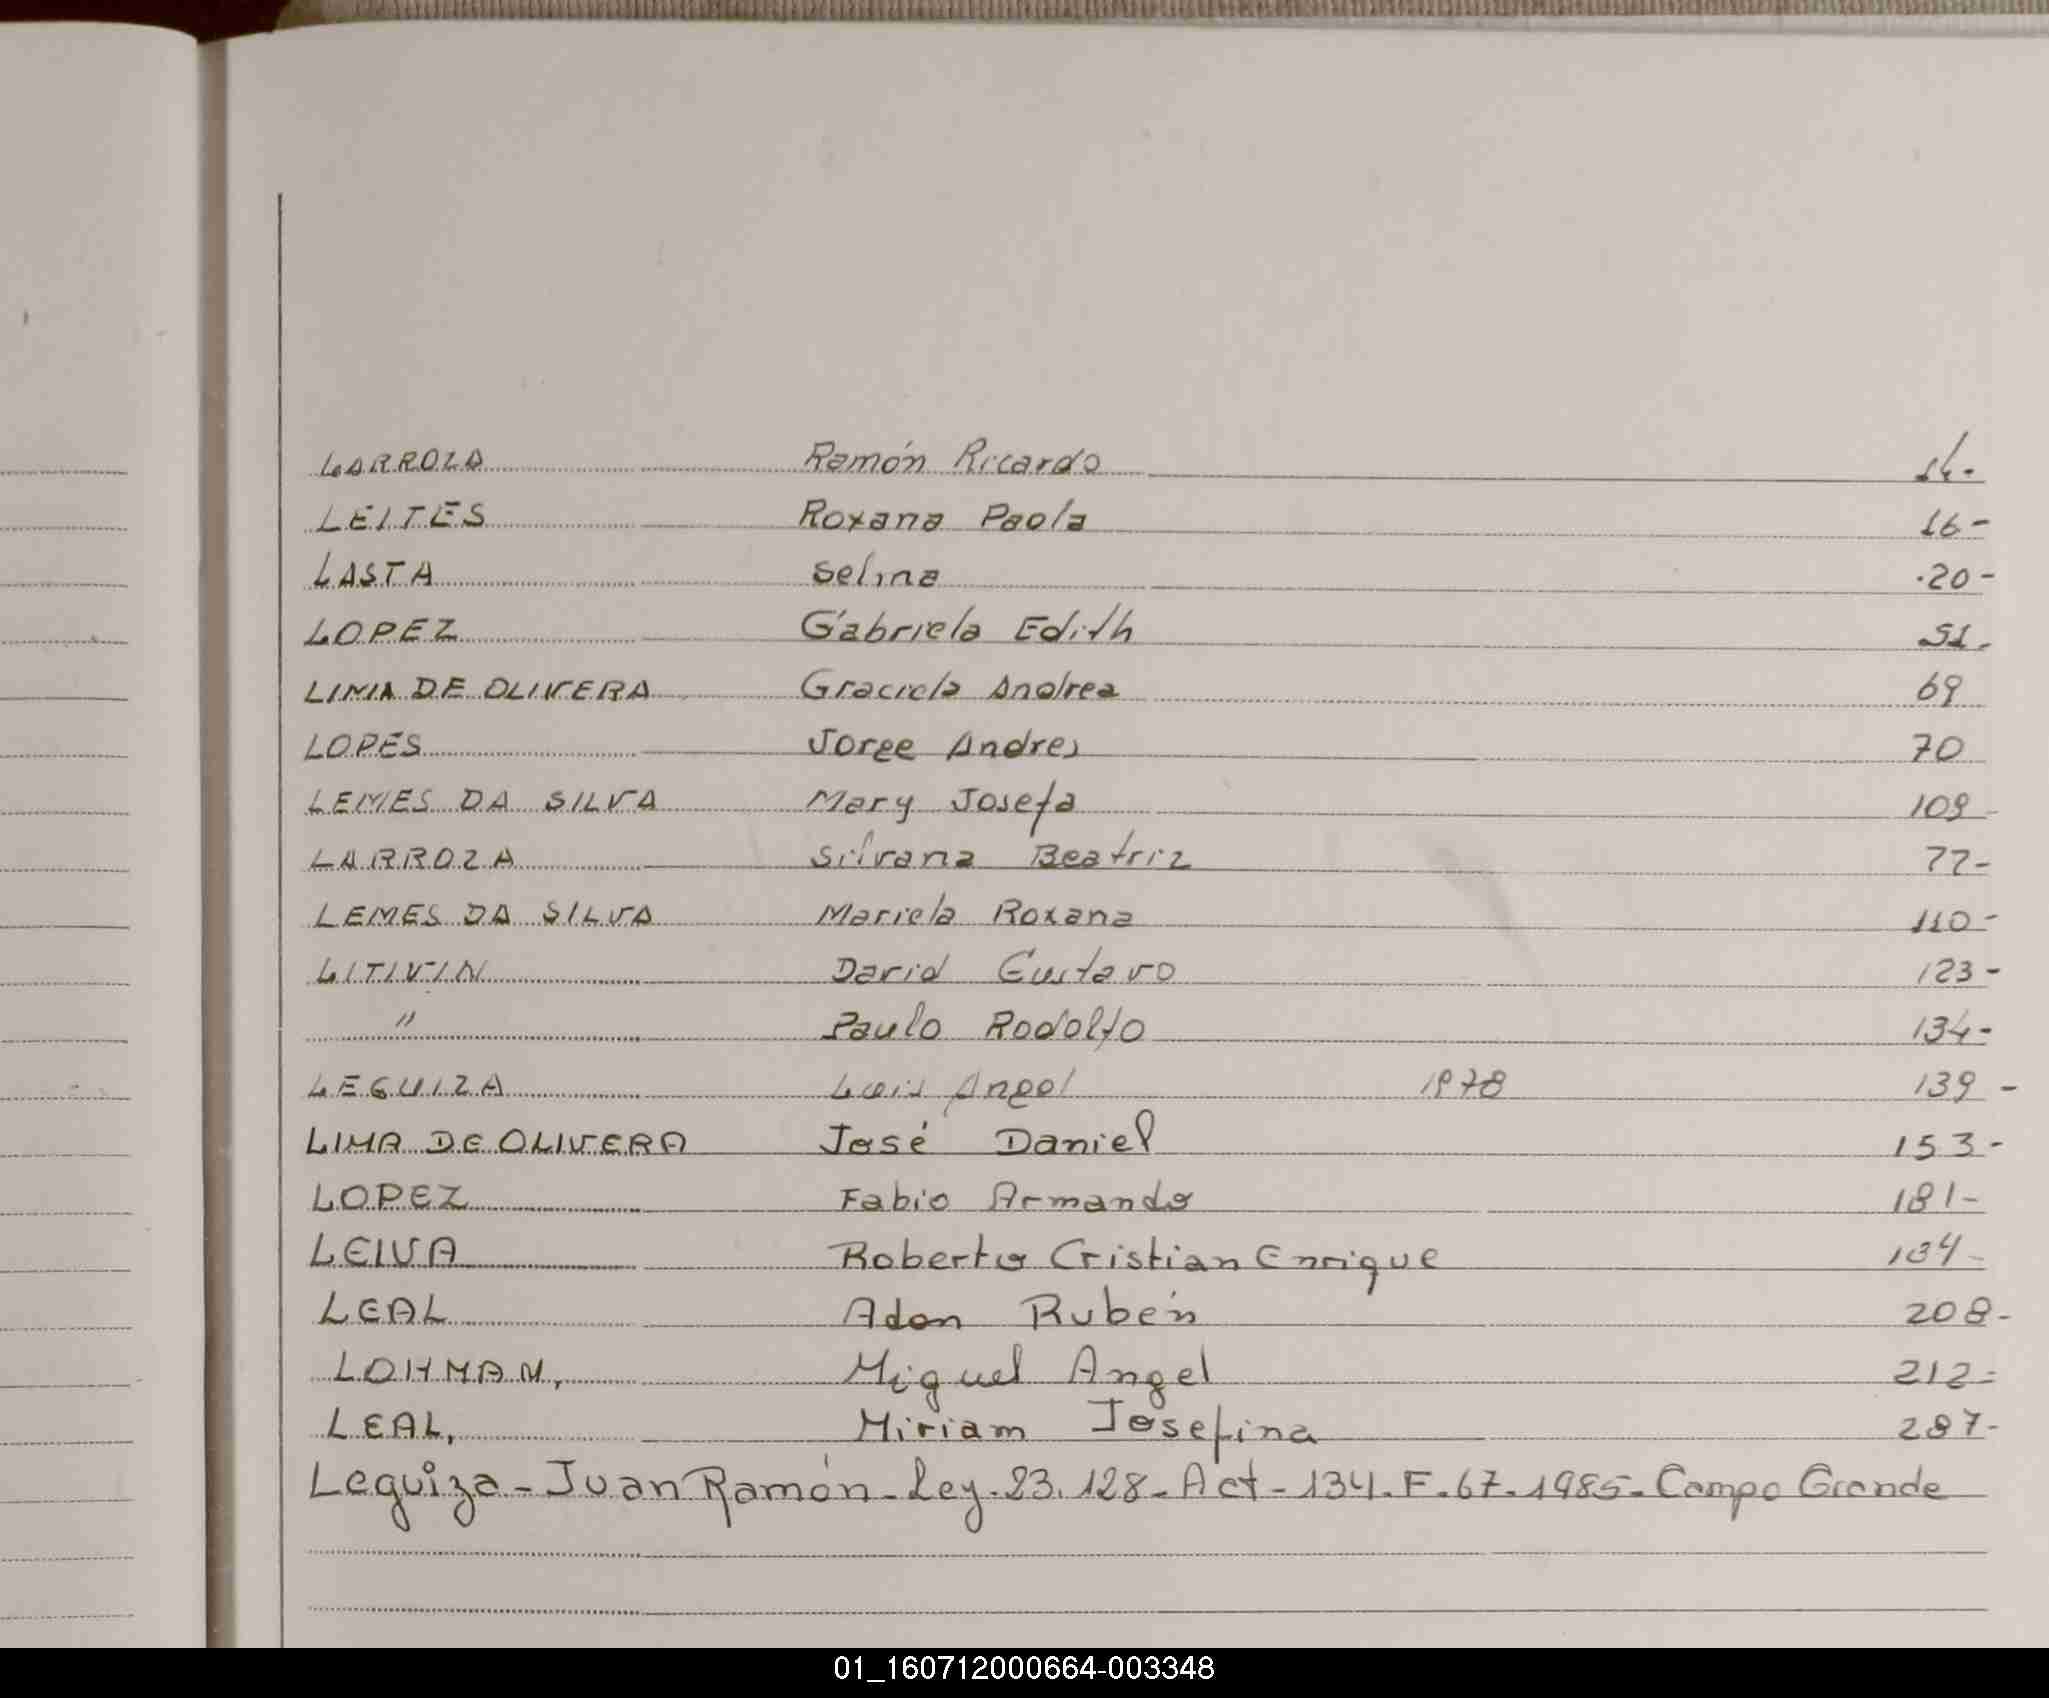 LARROZA Ramón Ricardo 14.
LEITES Roxana Paola 16-
LASTA Selina 20-
LOPEZ Gabriela Edith 51.
LIMA DE OLIVERA Graciela Andrea 69
LOPES Jorge Andres 70
LEMES DA SILVA Mary Josefa 109
LARROZA Silvana Beatriz 77-
LEMES DA SILVA Mariela Roxana 110-
LITIVIN David Gustavo 123-
" Paulo Rodolfo 134-
LEGUIZA Luis Angel 1978 139-
LIMA DE OLIVERA José Daniel 153-
LOPEZ Fabio Armando 181-
LEIVA Roberto Cristian Enrique
LEAL Adan Rubén 208-
LOHMAN, Miguel Angel 212-
LEAL, Miriam Josefina 287-
Leguiza - Juan Ramón - Ley. 23.128 - Act - 134. F. 67. 1985 - Campo Grande
01_160712000664-003348